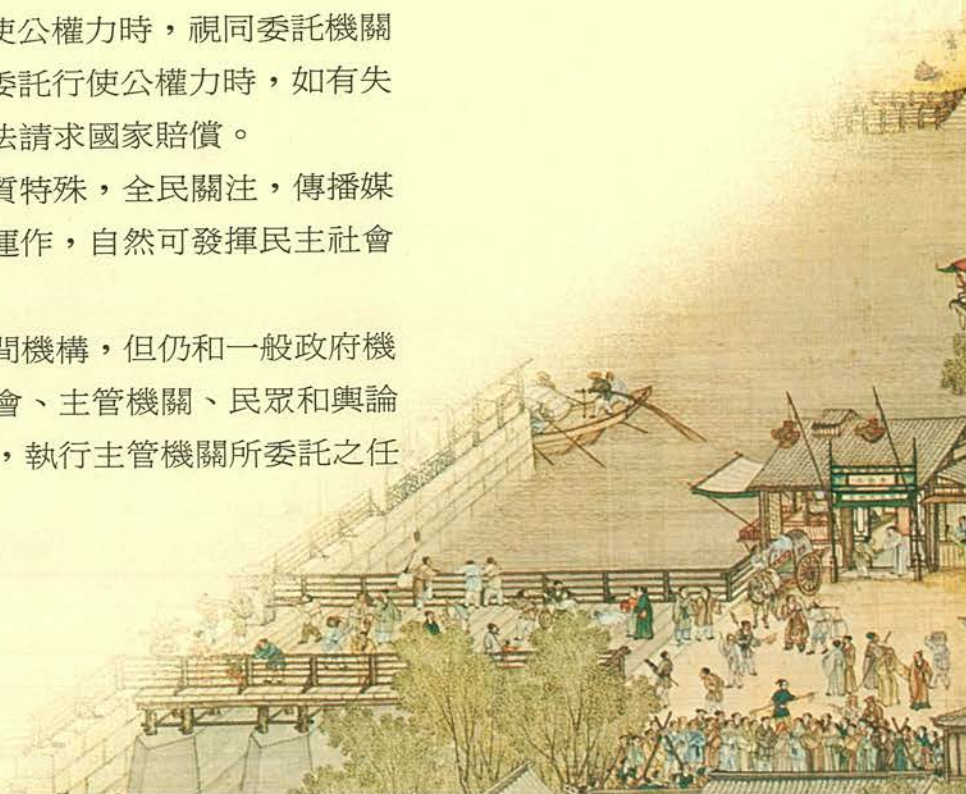 使公權力時，視同委託機關
委託行使公權力時，如有失
法請求國家賠償。
質特殊，全民關注，傳播媒
運作，自然可發揮民主社會
間機構，但仍和一般政府機
會、主管機關、民眾和輿論
，執行主管機關所委託之任